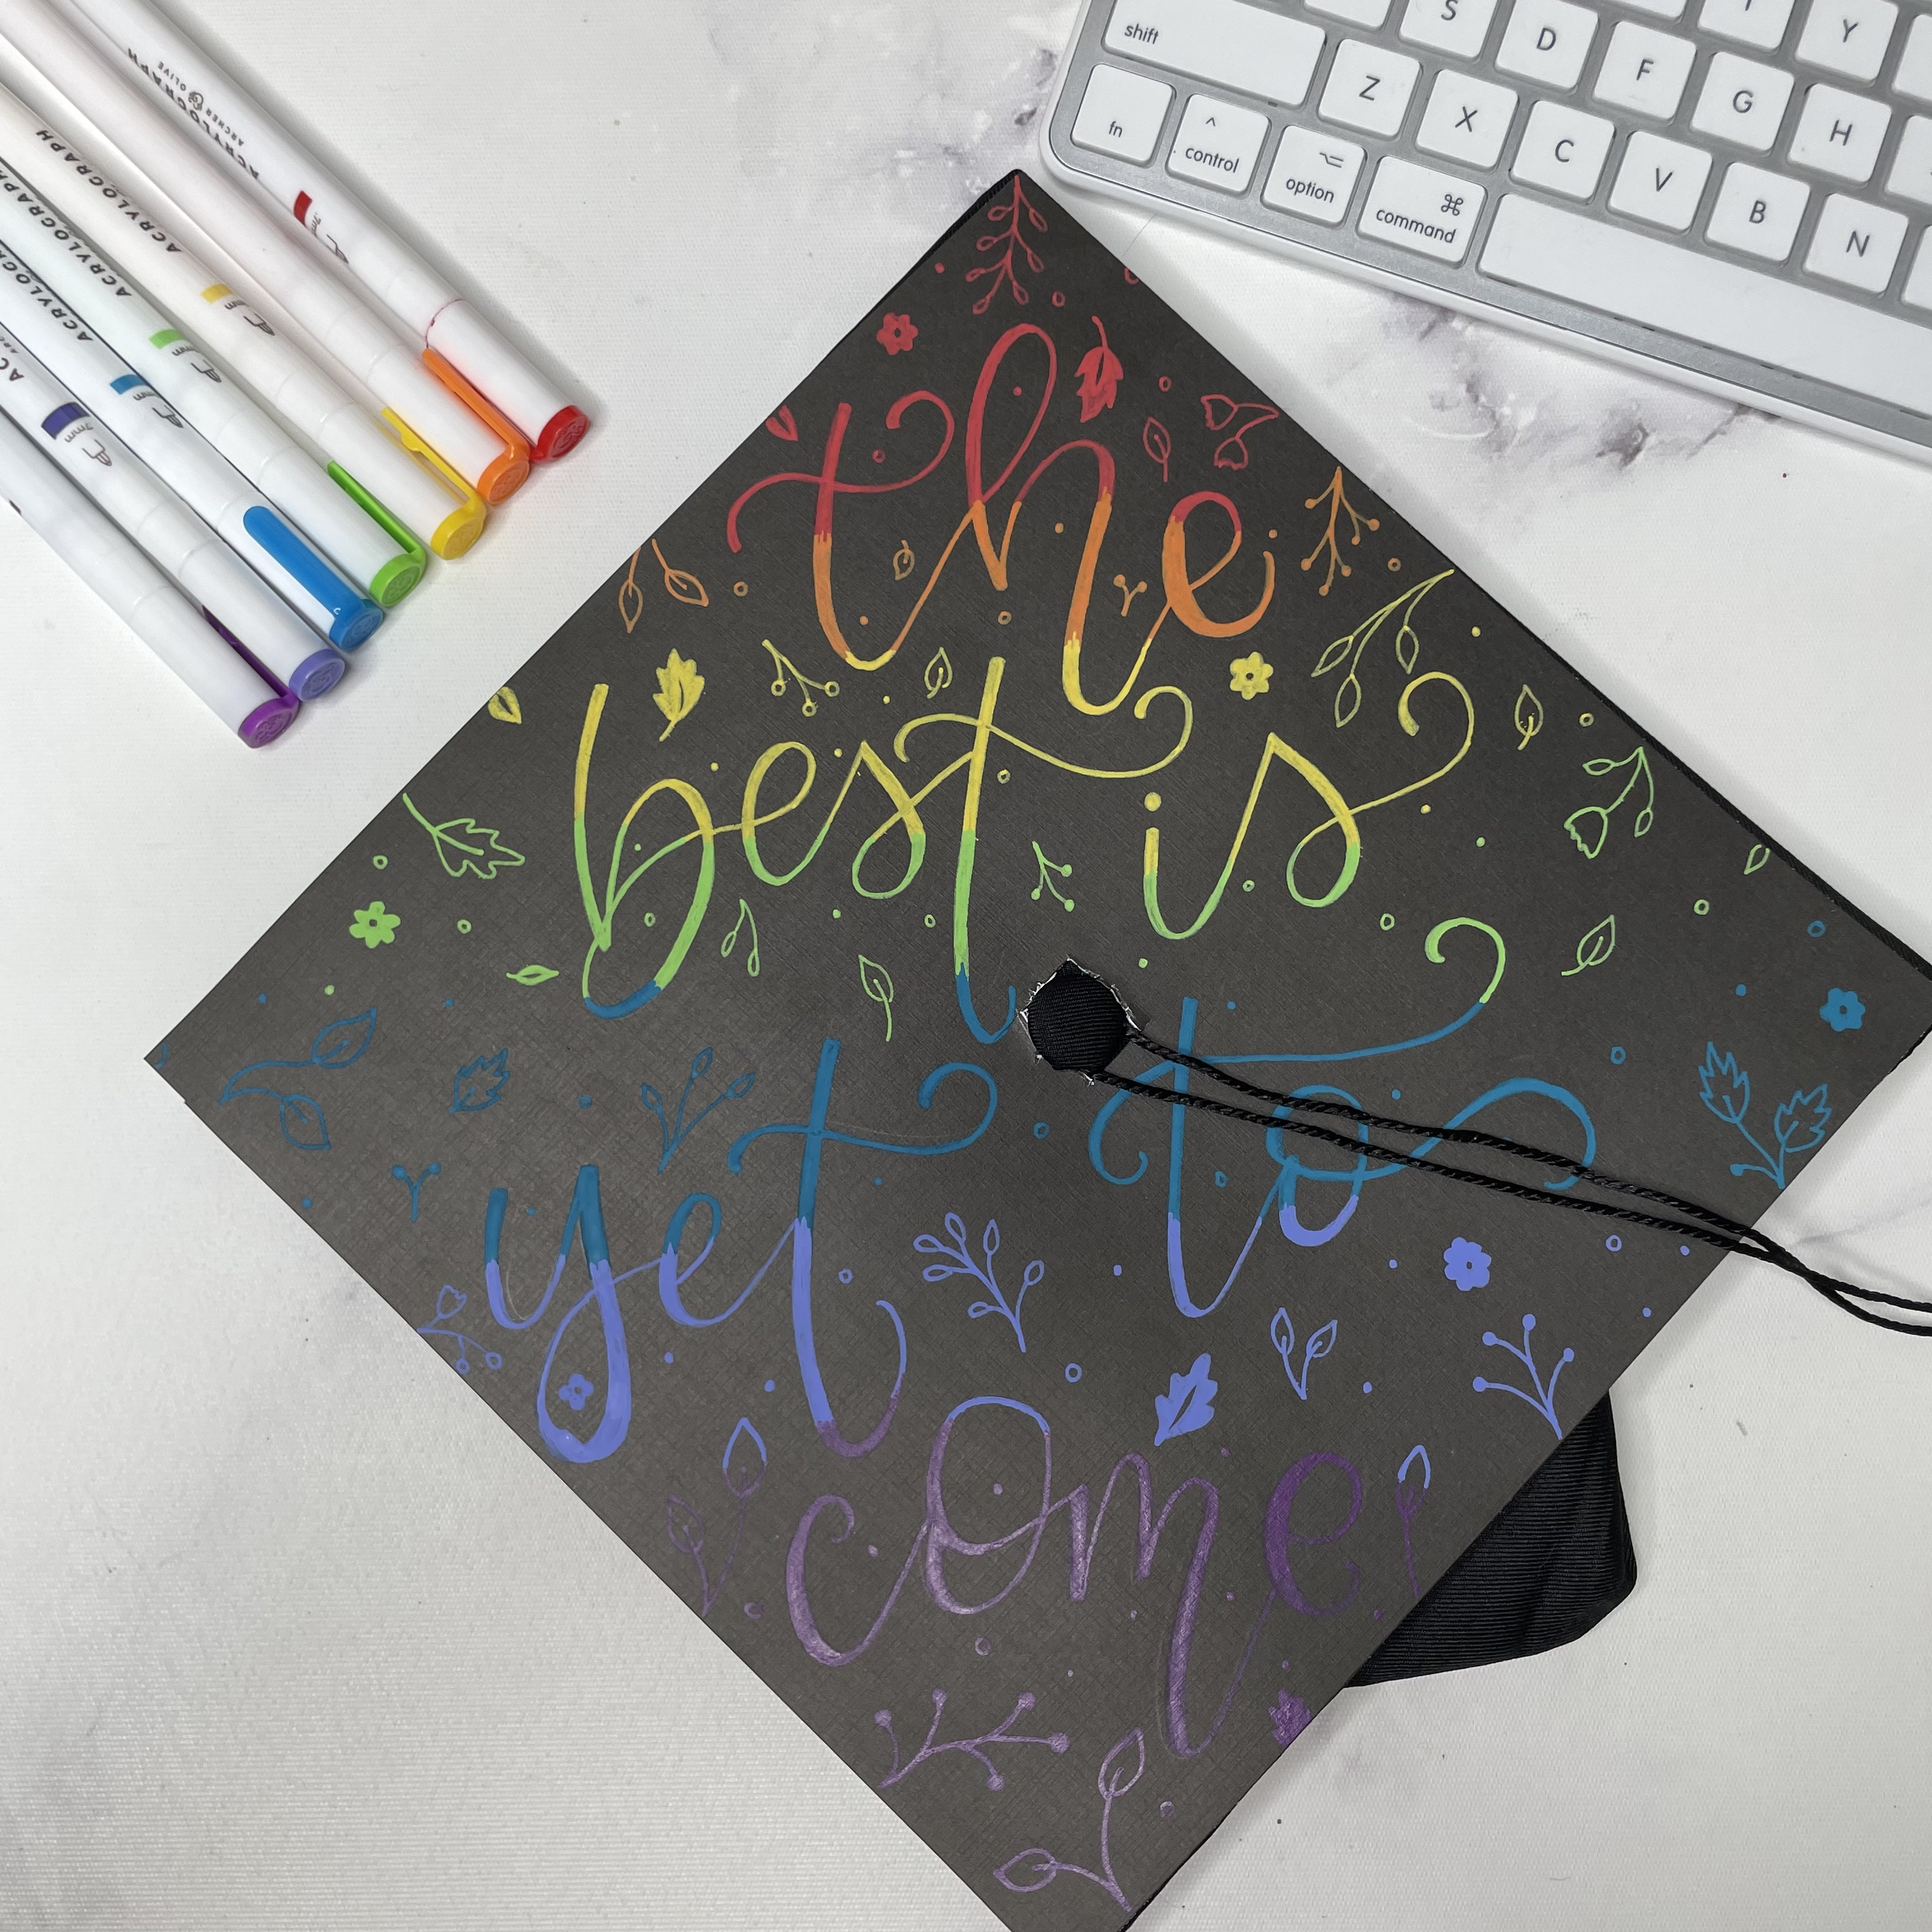 the
best is
yet to
come
ACRYLOGRAPH
ARCHER & OLIVE
ACRYLOGRAPH
ACRYLOGRAPH
ACRYLOGRAPH
S D F G H Y
shift Z X C V B N
fn
^ control
⌥ option
⌘ command